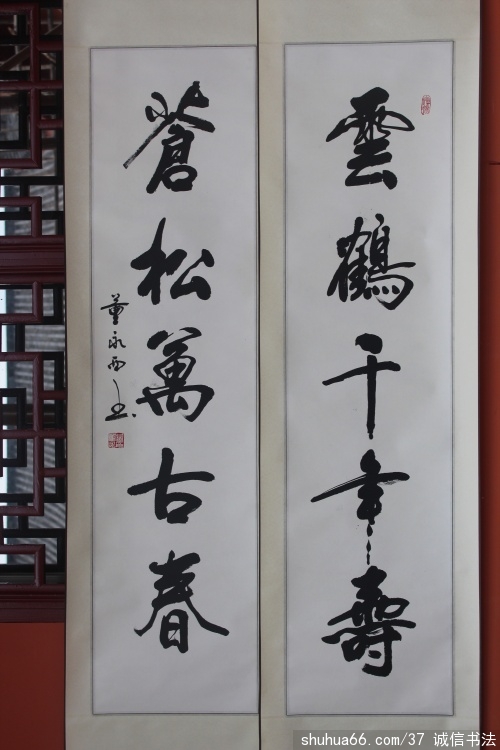 雲鶴千年壽
蒼松萬古春
董永西书
shuhua66.com/37 诚信书法